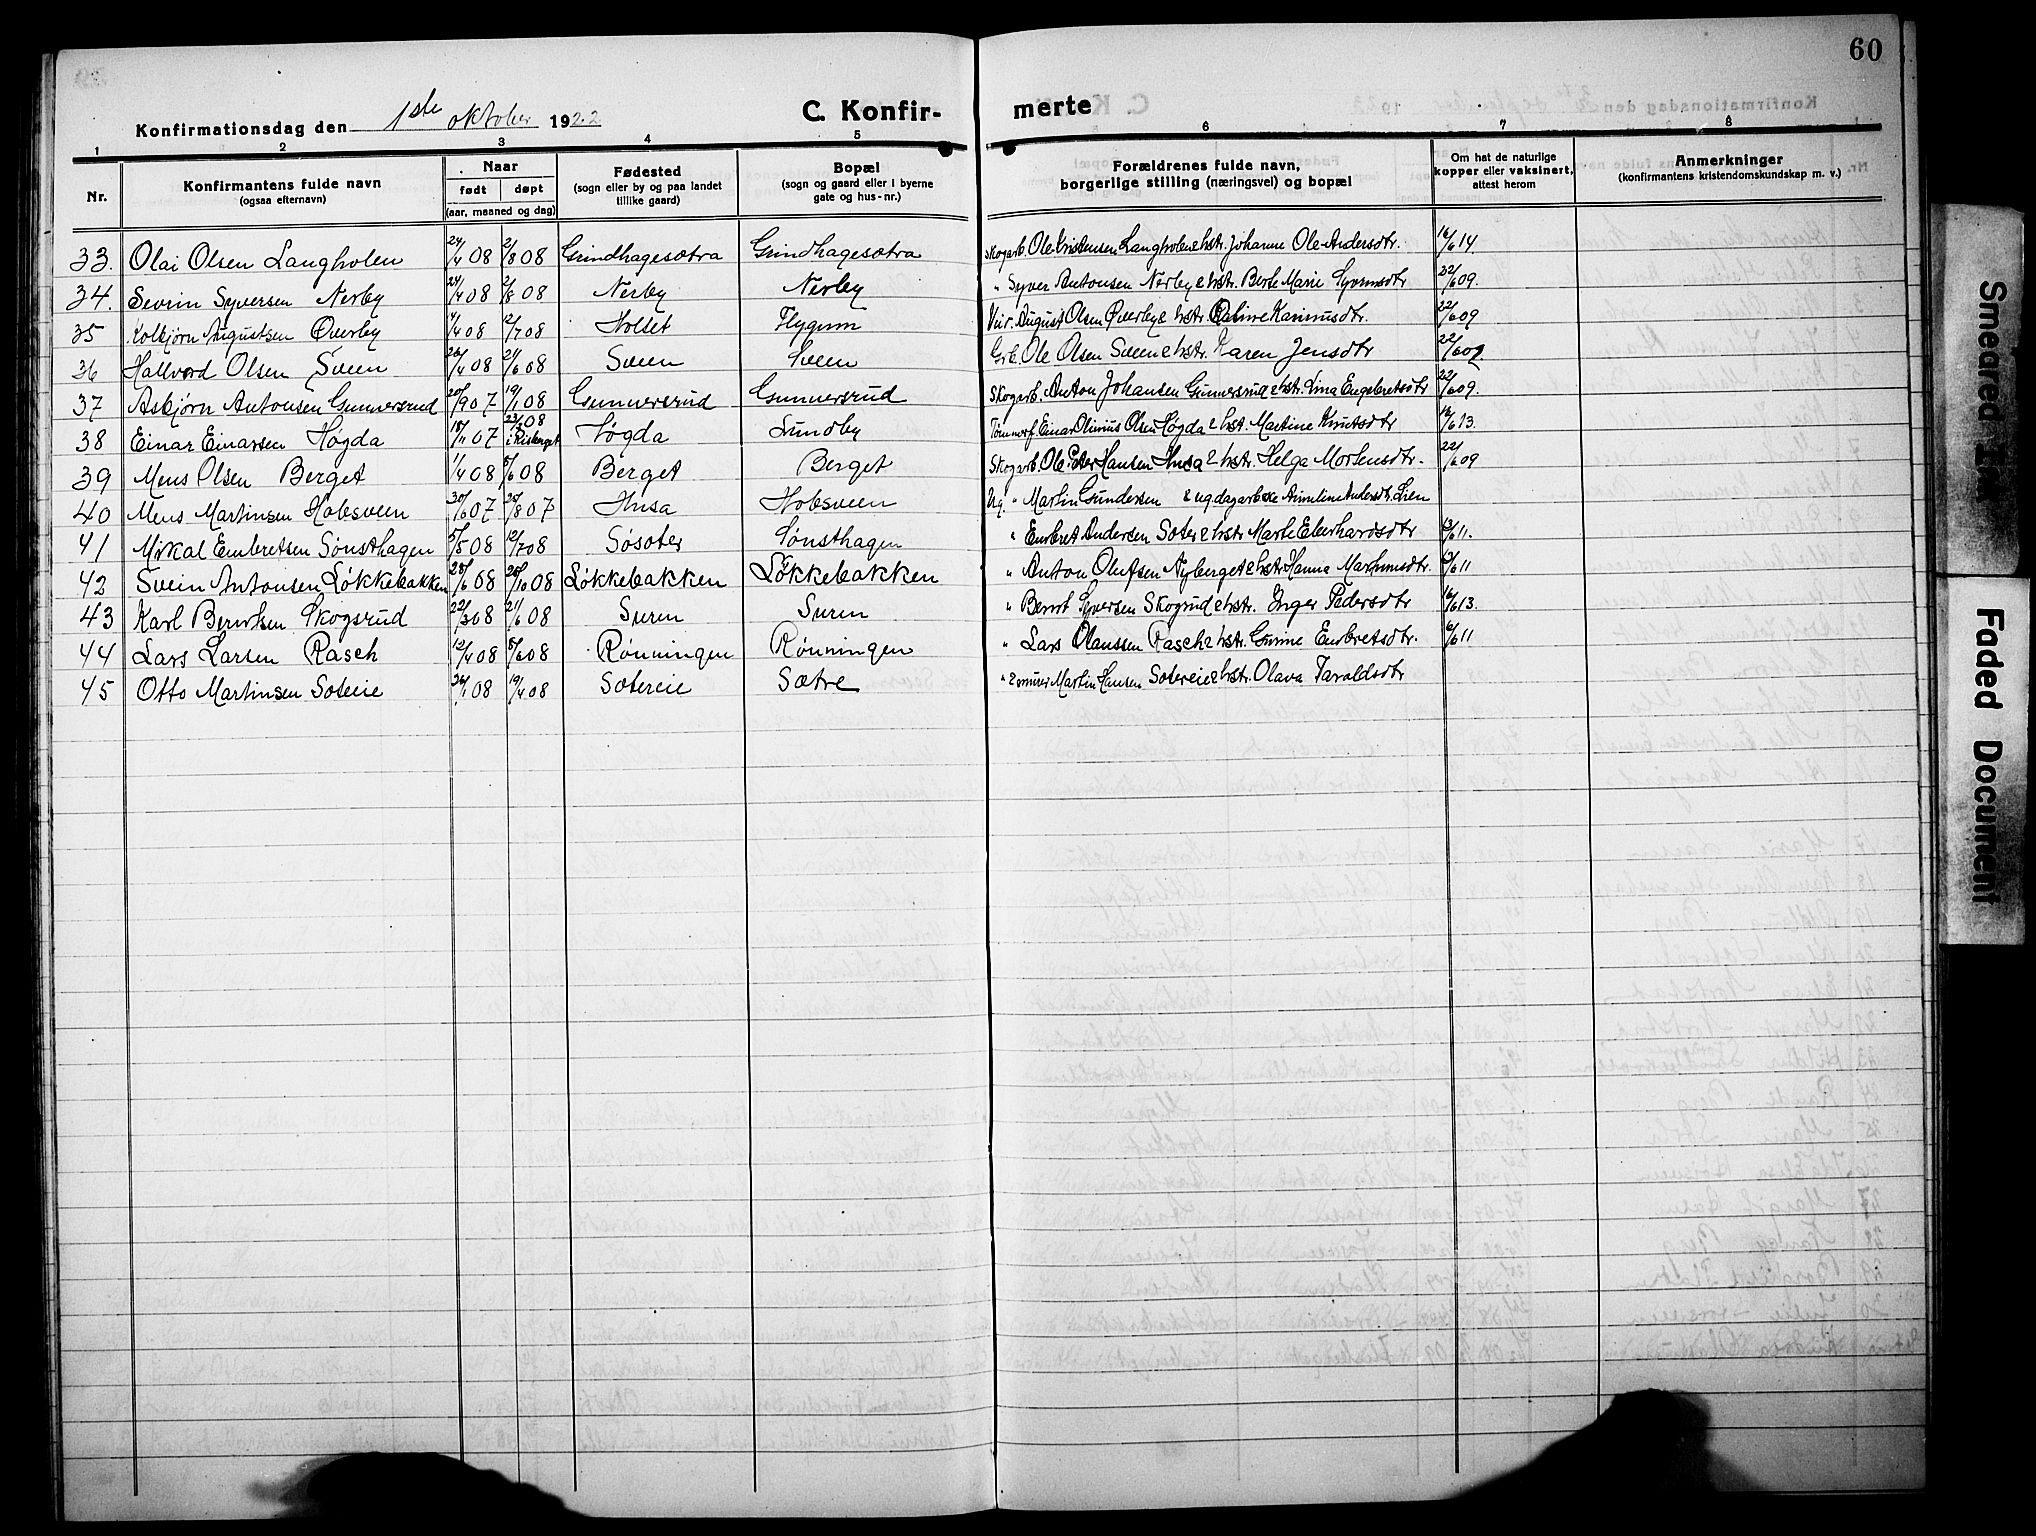 60
Konfirmationsdag den 1ste oktober 1922
C. Konfir-merte
1 2 3 4 5 6 7 8
Nr.
Konfirmantens fulde navn
(ogsaa efternavn)
Naar
født døpt
(aar, maaned og dag)
Fødested
(sogn eller by og paa landet
tillike gaard)
Bopæl
(sogn og gaard eller i byerne
gate og hus-nr.)
Forældrenes fulde navn,
borgerlige stilling (næringsvei) og bopæl
Om hat de naturlige
kopper eller vaksinert,
attest herom
Anmerkninger
(konfirmantens kristendomskundskap m. v.)
33. Olai Olsen Langholen 24/4 08 2/8 08 Grindhagesætra Grindhagesætra Skogarb. Ole Kristensen Langholen & hstr. Johanne Ole Andersdtr. 16/6 14.
34. Sevrin Syversen Nerby 24/4 08 2/8 08 Nerby Nerby " Syver Antonsen Nerby & hstr. Berte Marie Syversdtr 22/6 09.
35 Kolbjørn Augustsen Øverby 4/4 08 12/7 08 Holtet Flygum August Olsen Øverby & hstr. Oline Karinusdtr. 22/6 09
36 Hallvord Olsen Sveen 26/4 08 21/6 08 Sveen Sveen Grb. Ole Olsen Sveen & hstr. Karen Jensdtr 22/6 09.
37 Asbjørn Antonsen Gunnersrud 20/9 07 19/1 08 Gunnersrud Gunnersrud Skogarb. Anton Johansen Gunnersrud & hstr. Lina Engebretsdtr 22/6 09.
38 Einar Einarsen Høgda 18/11 07 23/2 08 i Risberget Høgda Sundby Tømmerf. Einar Olinius Olsen Høgda & hst. Martine Knutsdtr 16/6 13.
39 Mens Olsen Berget 1/4 08 8/6 08 Berget Berget Skogarb. Ole Peter Hansen Husa & hstr. Helga Mortensdtr. 22/6 09
40 Mens Martinsen Hobsveen 30/6 07 25/8 07 Husa Hobsveen Ug. " Martin Gundersen & ug. Andersdtr. Lien
41 Mikal Embretsen Sønsthagen 5/5 08 12/7 08 Søsæter Sønsthagen " Embret Andersen Sæter & hstr. Marte Eberhardsdtr 13/6 11.
42 Svein Antonsen Løkkebakken 28/6 08 25/10 08 Løkkebakken Løkkebakken " Anton Olufsen Nyberget & hstr. Hanna Martinusdtr. 13/6 11
43 Karl Berntsen Skogsrud 22/3 08 21/6 08 Suren Suren " Bernt Syversen Skogrud & hstr. Inger Pedersdtr 16/6 13.
44 Lars Larsen Rasch 12/4 08 8/6 08 Rønningen Rønningen " Lars Olaussen Rasch & hstr. Gunine Embretsdtr. 6/6 11
45 Otto Martinsen Sæteeie 26/1 08 19/4 08 Sætereie Sætre " & murer Martin Hansen Sætereie & hstr. Olava Taraldsdtr
Smeared Ink
Faded Document